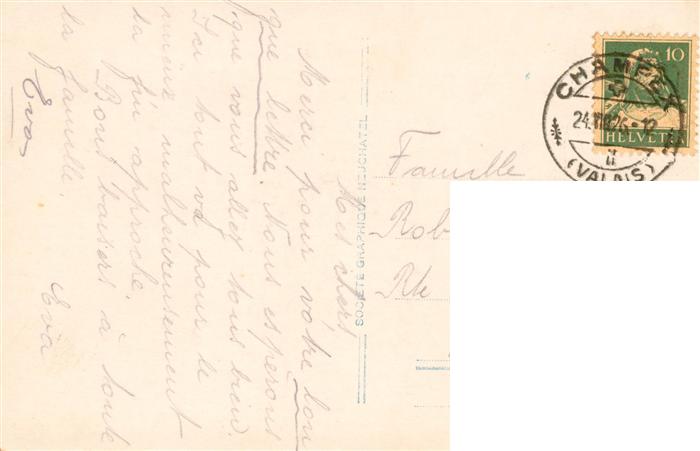 Mes chers
Merci pour vôtre lon
gue lettre. Nous esperons
que vous allez tous bien.
Ici tout va pour le
mieux malheureusement
la fin approche.
Bons baisers à toute
la famille.
Eva
Eva
SOCIÉTÉ GRAPHIQUE NEUCHATEL
10
HELVETIA
CHAMPEX
(VALAIS)
Famille
Rob